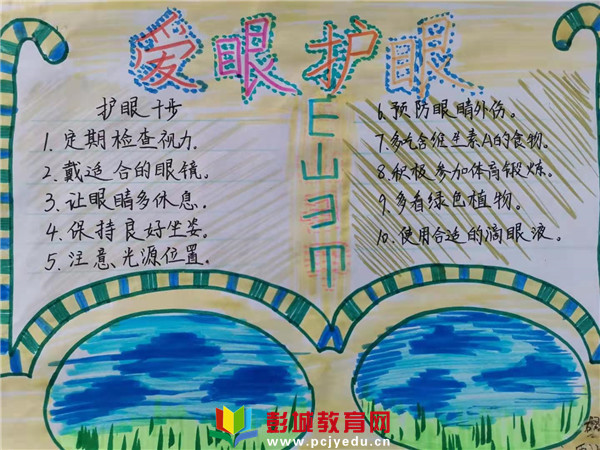 爱眼护眼
护眼十步
1. 定期检查视力。
2. 戴适合的眼镜。
3. 让眼睛多休息。
4. 保持良好坐姿。
5. 注意光源位置。
E
Ш
ヨ
M
6. 预防眼睛外伤。
7. 多吃含维生素A的食物。
8. 积极参加体育锻炼。
9. 多看绿色植物。
10. 使用合适的滴眼液。
彭城教育网
www.pcjyedu.cn